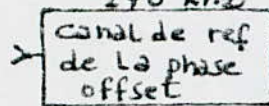 canal de ref
de la phase
offset